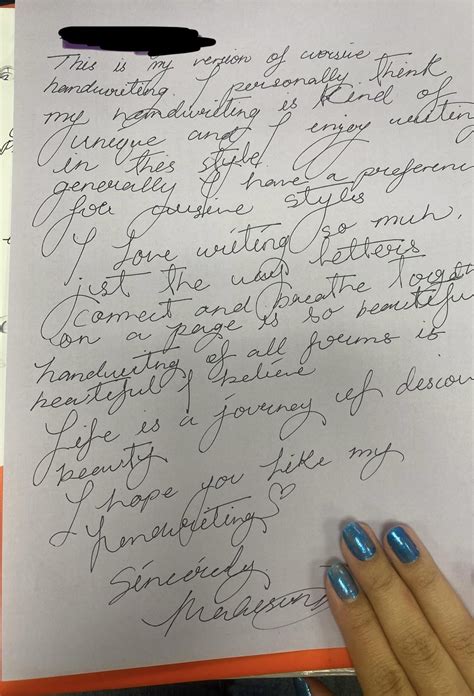 This is my version of cursive
handwriting. I personally think
my handwriting is kind of
unique and I enjoy writing
in this style.
generally I have a preferenc
for cusive styles
I Love writing so much,
just the way letters
connect and breathe togeth
on a page is so beautiful
handwriting of all forms is
beautiful I believe
Life is a journey of discov
beauty
I hope you like my
handwriting
Sincerely